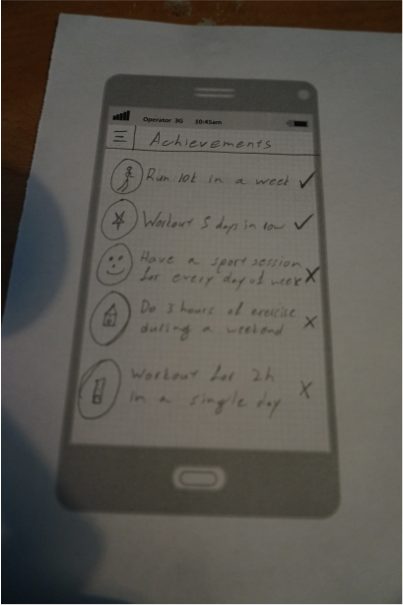 Operator 3G 10:45am
Achievements
Run 10k in a week
Workout 5 days in row
Have a sport session
for every day of week
Do 3 hours of exercise
during a weekend
Workout for 2h
in a single day